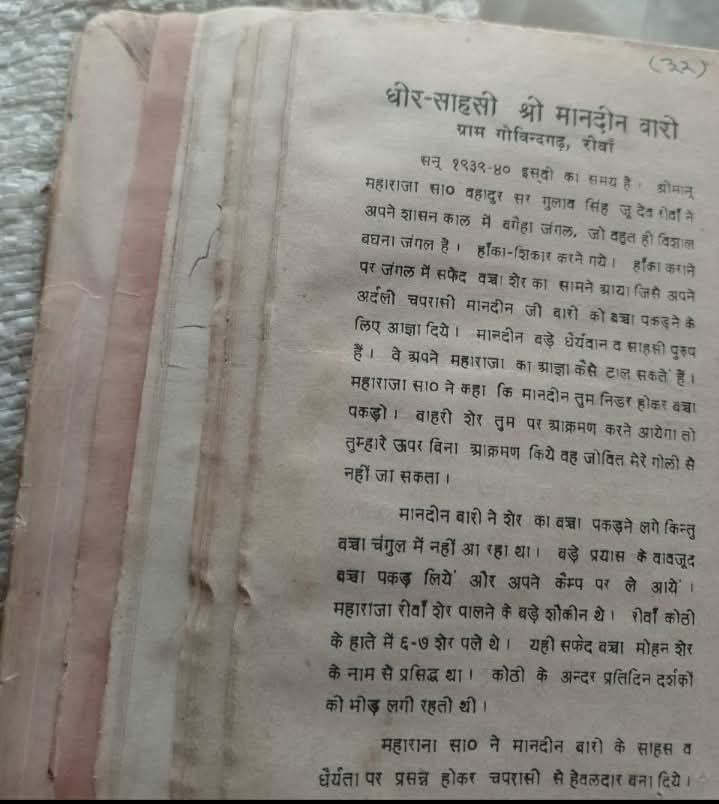 (३२)
धीर-साहसी श्री मानदीन बारी
ग्राम गोविन्दगढ़, रीवाँ
सन् १९३९-४० इसवी का समय है। श्रीमान्
महाराजा सा० वहादुर सर गुलाव सिंह जू देव रीवाँ ने
अपने शासन काल में बगेहा जंगल, जो वहुत ही विशाल
बघना जंगल है। हाँका-शिकार करने गये। हाँका कराने
पर जंगल में सफेद वच्चा शेर का सामने आया जिसे अपने
अर्दली चपरासी मानदीन जी बारी को बच्चा पकड़ने के
लिए आज्ञा दिये। मानदीन बड़े धैर्यवान व साहसी पुरुष
हैं। वे अपने महाराजा का आज्ञा कैसे टाल सकते हैं।
महाराजा सा० ने कहा कि मानदीन तुम निडर होकर बच्चा
पकड़ो। वाहरी शेर तुम पर आक्रमण करने आयेगा तो
तुम्हारे ऊपर विना आक्रमण किये वह जीवित मेरे गोली से
नहीं जा सकता।
मानदीन बारी ने शेर का वच्चा पकड़ने लगे किन्तु
वच्चा चंगुल में नहीं आ रहा था। बड़े प्रयास के वावजूद
बच्चा पकड़ लिये और अपने कैम्प पर ले आये।
महाराजा रीवाँ शेर पालने के बड़े शौकीन थे। रीवाँ कोठी
के हाते में ६-७ शेर पले थे। यही सफेद बच्चा मोहन शेर
के नाम से प्रसिद्ध था। कोठी के अन्दर प्रतिदिन दर्शकों
की भीड़ लगी रहती थी।
महाराजा सा० ने मानदीन बारी के साहस व
धैर्यता पर प्रसन्न होकर चपरासी से हेवलदार बना दिये।